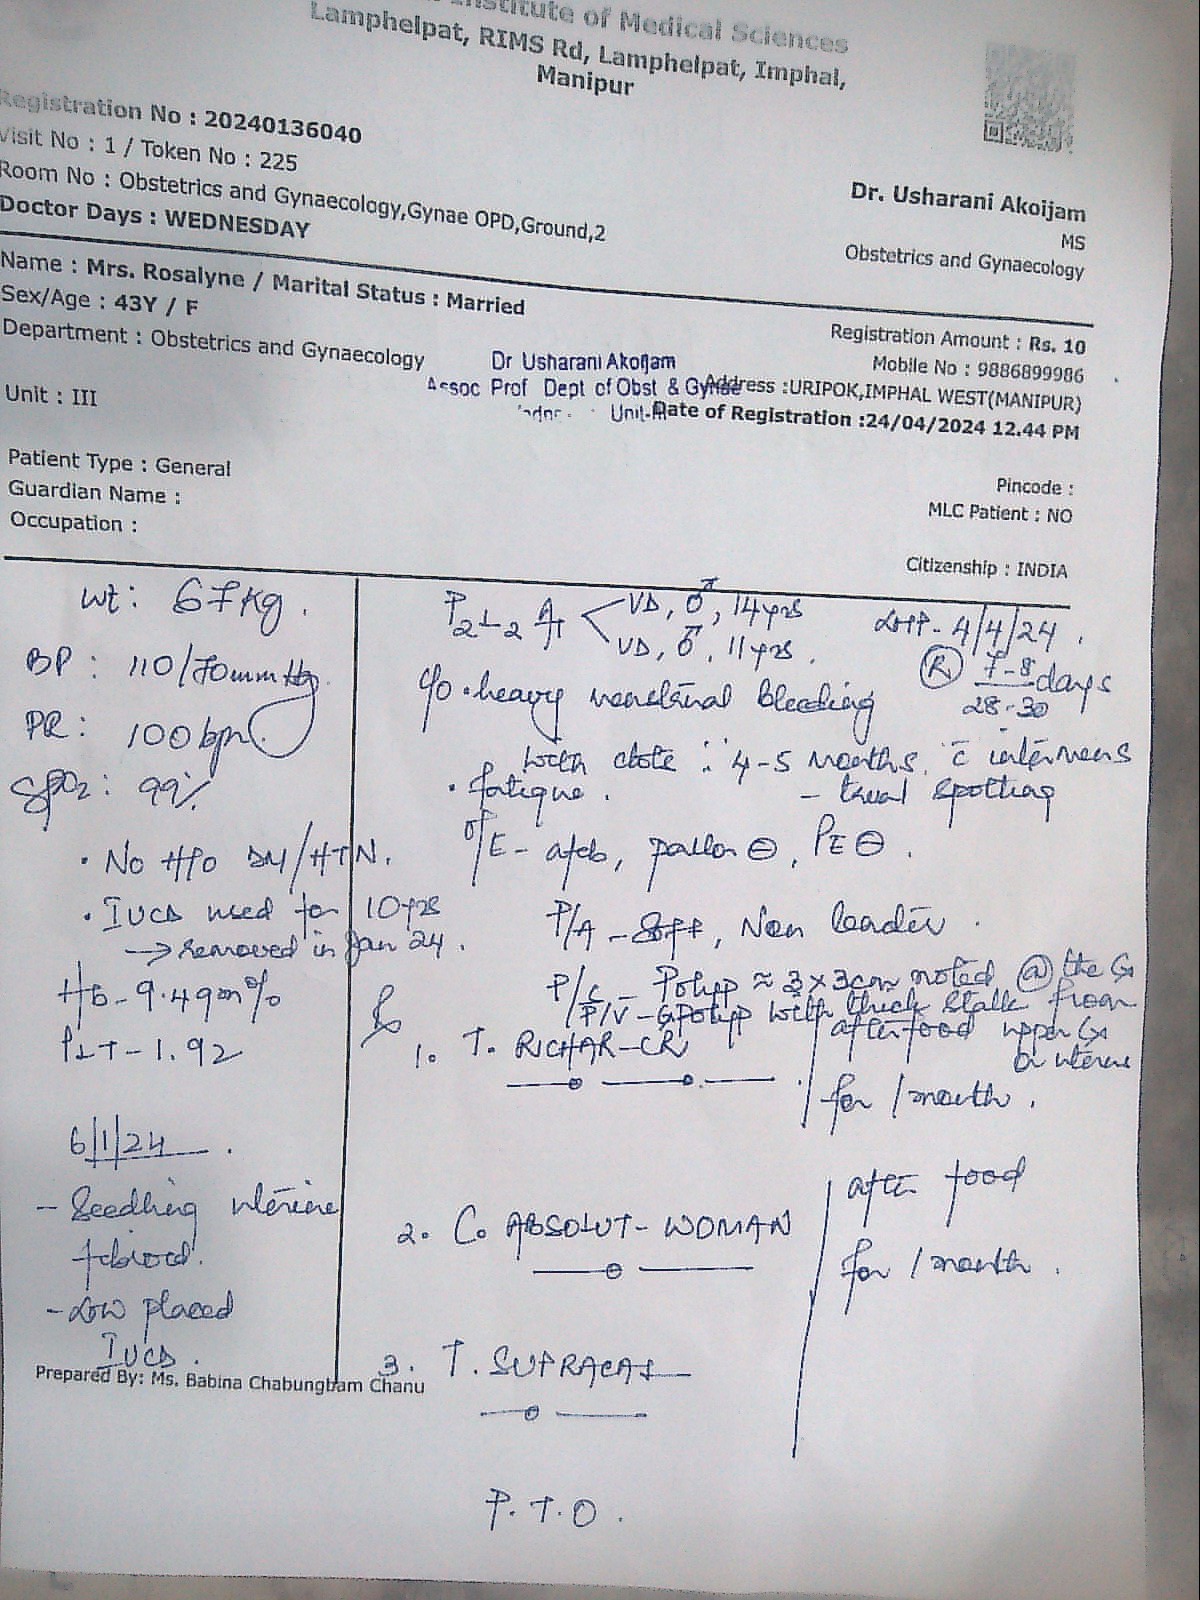 Institute of Medical Sciences
Lamphelpat, RIMS Rd, Lamphelpat, Imphal,
Manipur
Registration No : 20240136040
Visit No : 1 / Token No : 225
Room No : Obstetrics and Gynaecology,Gynae OPD,Ground,2
Doctor Days : WEDNESDAY
Dr. Usharani Akoijam
MS
Obstetrics and Gynaecology
Name : Mrs. Rosalyne / Marital Status : Married
Sex/Age : 43Y / F
Department : Obstetrics and Gynaecology
Unit : III
Registration Amount : Rs. 10
Mobile No : 9886899986
Address :URIPOK,IMPHAL WEST(MANIPUR)
Date of Registration :24/04/2024 12.44 PM
Dr Usharani Akoijam
Assoc Prof Dept of Obst & Gynae
Unit-III
Patient Type : General
Guardian Name :
Occupation :
Pincode :
MLC Patient : NO
Citizenship : INDIA
Wt: 67kg.
BP: 110/70mmHg
PR: 100bpm
SpO2: 99%
• No H/o DM/HTN.
• IUCD used for 10yrs
→ removed in Jan 24.
Hb-9.4gm%
PLT-1.92
6/1/24.
- Seedling uterine
fibroid.
- Low placed
IUCD.
P2L2 A1
VD, ♂, 14yrs
VD, ♂, 11yrs.
LMP-4/4/24.
(R) 7-8/28-30 days
c/o • heavy menstrual bleeding
with clots 4-5 months. c̄ intermens
- trual spotting
• fatigue.
O/E- afeb, pallor ⊖, PE ⊖.
P/A - Soft, Non tender.
P/S - Polyp ≈ 3x3cm noted @ the Cx
P/V - Polyp with thick stalk from
upper Cx
or uterus
1. T. RICHAR-CR
after food
for 1 month.
2. C. ABSOLUT-WOMAN
after food
for 1 month.
3. T. SUPRACAL
Prepared By: Ms. Babina Chabungbam Chanu
P.T.O.